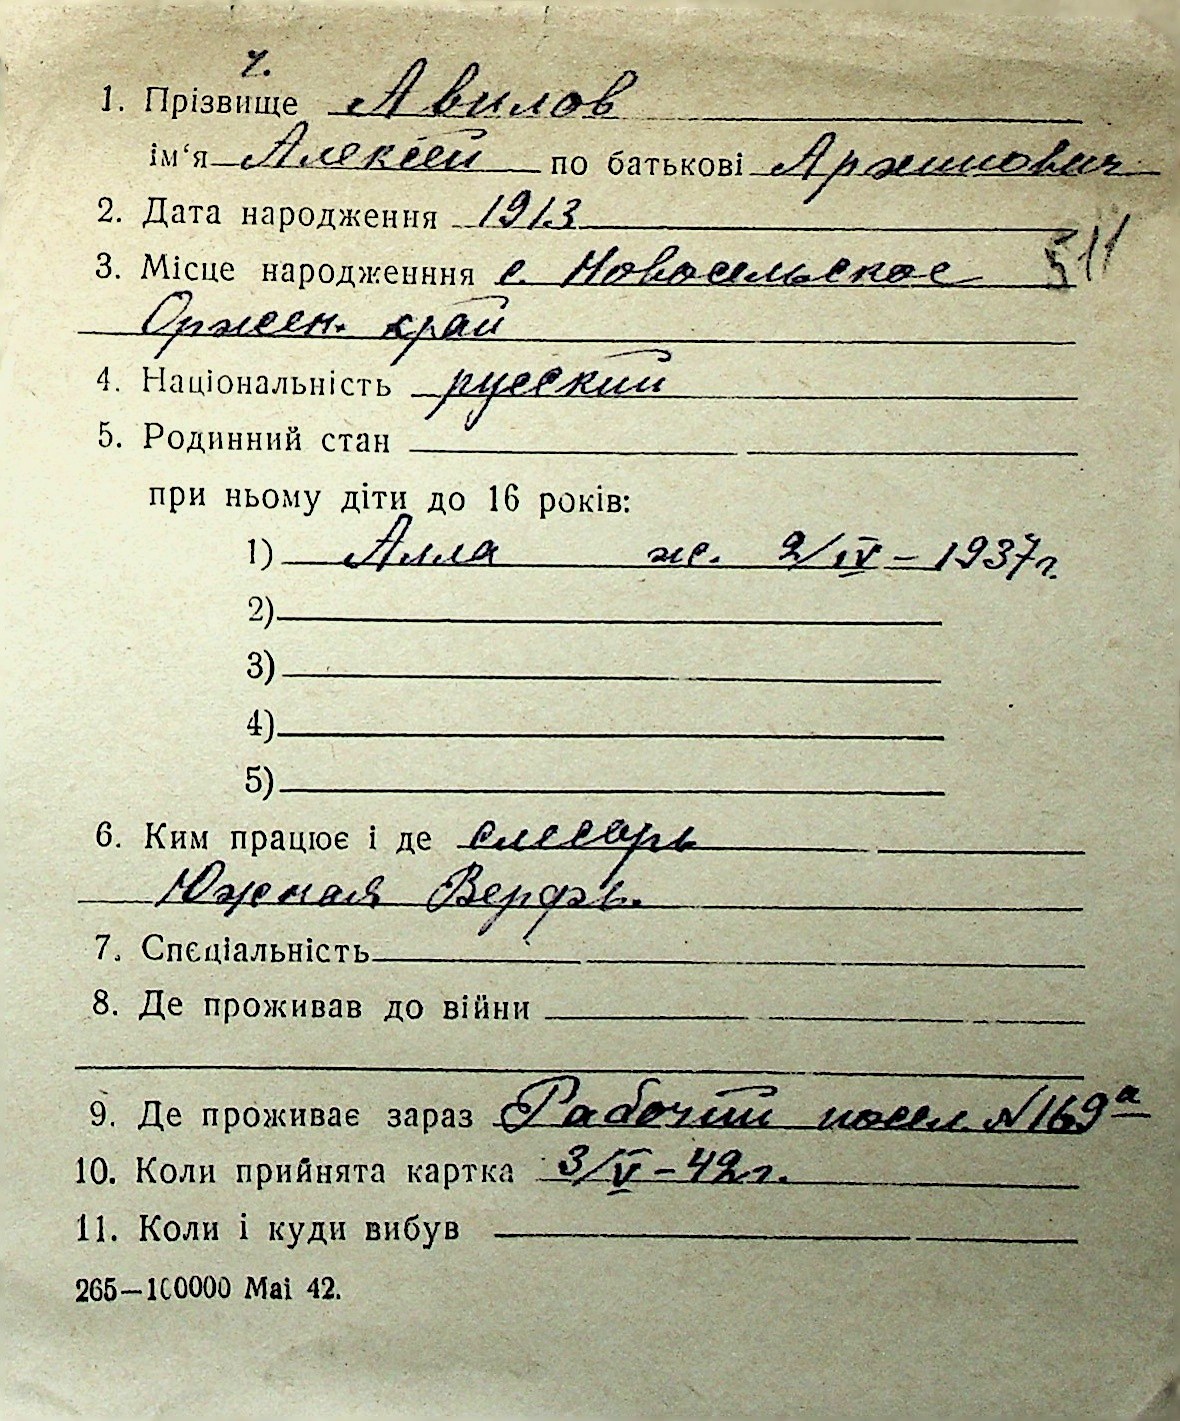 ч.
1. Прізвище Авилов
ім‘я Алексей по батькові Архипович
2. Дата народження 1913
3. Місце народженння с. Новосельское 511
Оржен. край
4. Національність русский
5. Родинний стан
при ньому діти до 16 років:
1) Алла ж. 2/IV – 1937г.
2)
3)
4)
5)
6. Ким працює і де слесарь
Южная Верфь.
7. Спєціальність
8. Де проживав до війни
9. Де проживає зараз Рабочий посел. N169а
10. Коли прийнята картка 3/V – 42г.
11. Коли і куди вибув
265—100000 Mai 42.